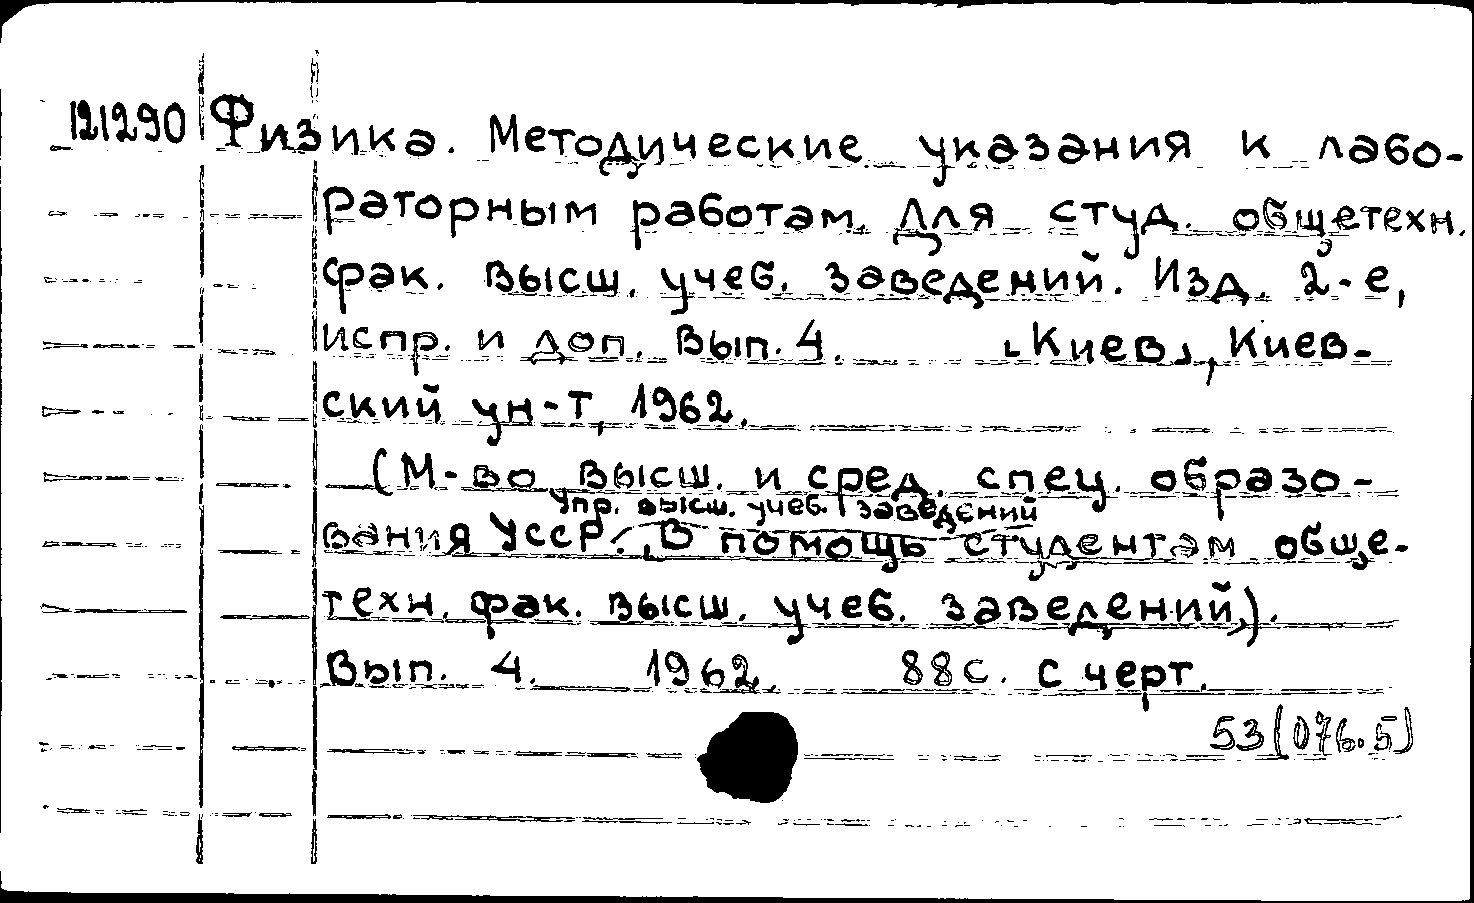 121290 Физика. Методические указания к лабо-
раторным работам. Для студ. общетехн.
фак. высш. учеб. заведений. Изд. 2-е,
испр. и доп. Вып. 4. [Киев], Киев-
ский ун-т, 1962.
(М-во высш. и сред. спец. образо-
Упр. высш. учеб. заведений
вания УССР. „В помощь студентам обще-
техн. фак. высш. учеб. заведений").
Вып. 4. 1962. 88с. с черт.
53(076.5)